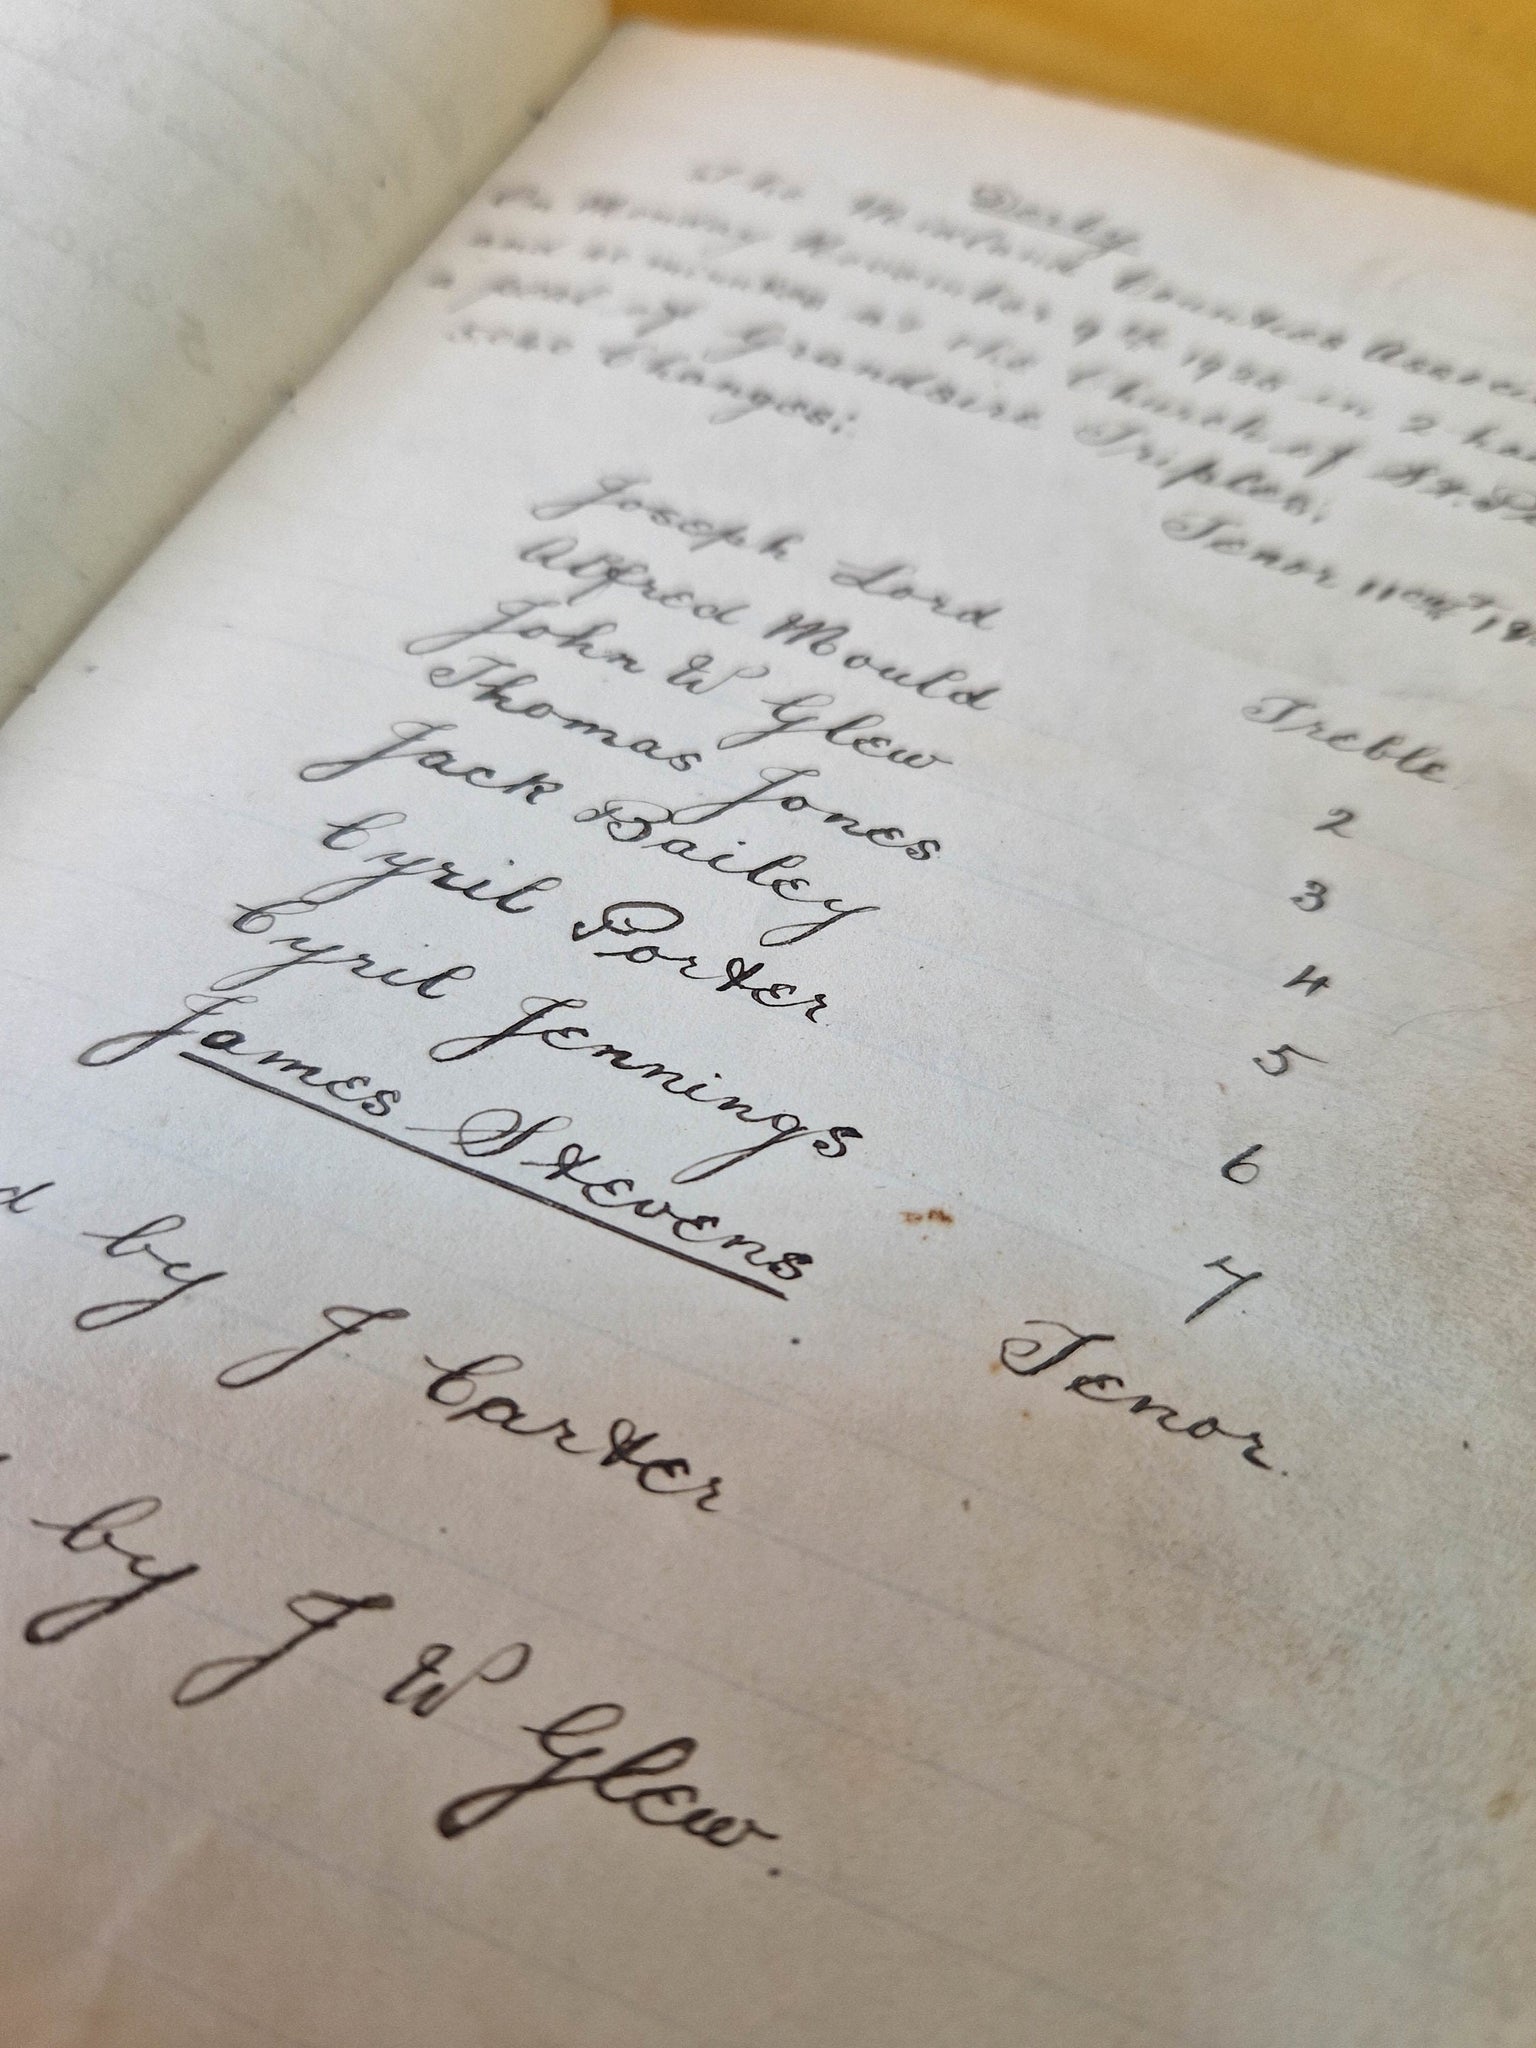 Derby
The Midland Counties
On Monday November 9th 19 in 2
and minutes at the Church of St.
a peal of Grandsire Triples.
Changes: Tenor 11 cwt
Joseph Lord Treble
Alfred Mould 2
John W Glew 3
Thomas Jones 4
Jack Bailey 5
Cyril Porter 6
Cyril Jennings 7
James Stevens Tenor.
d by J Carter
by J W Glew.